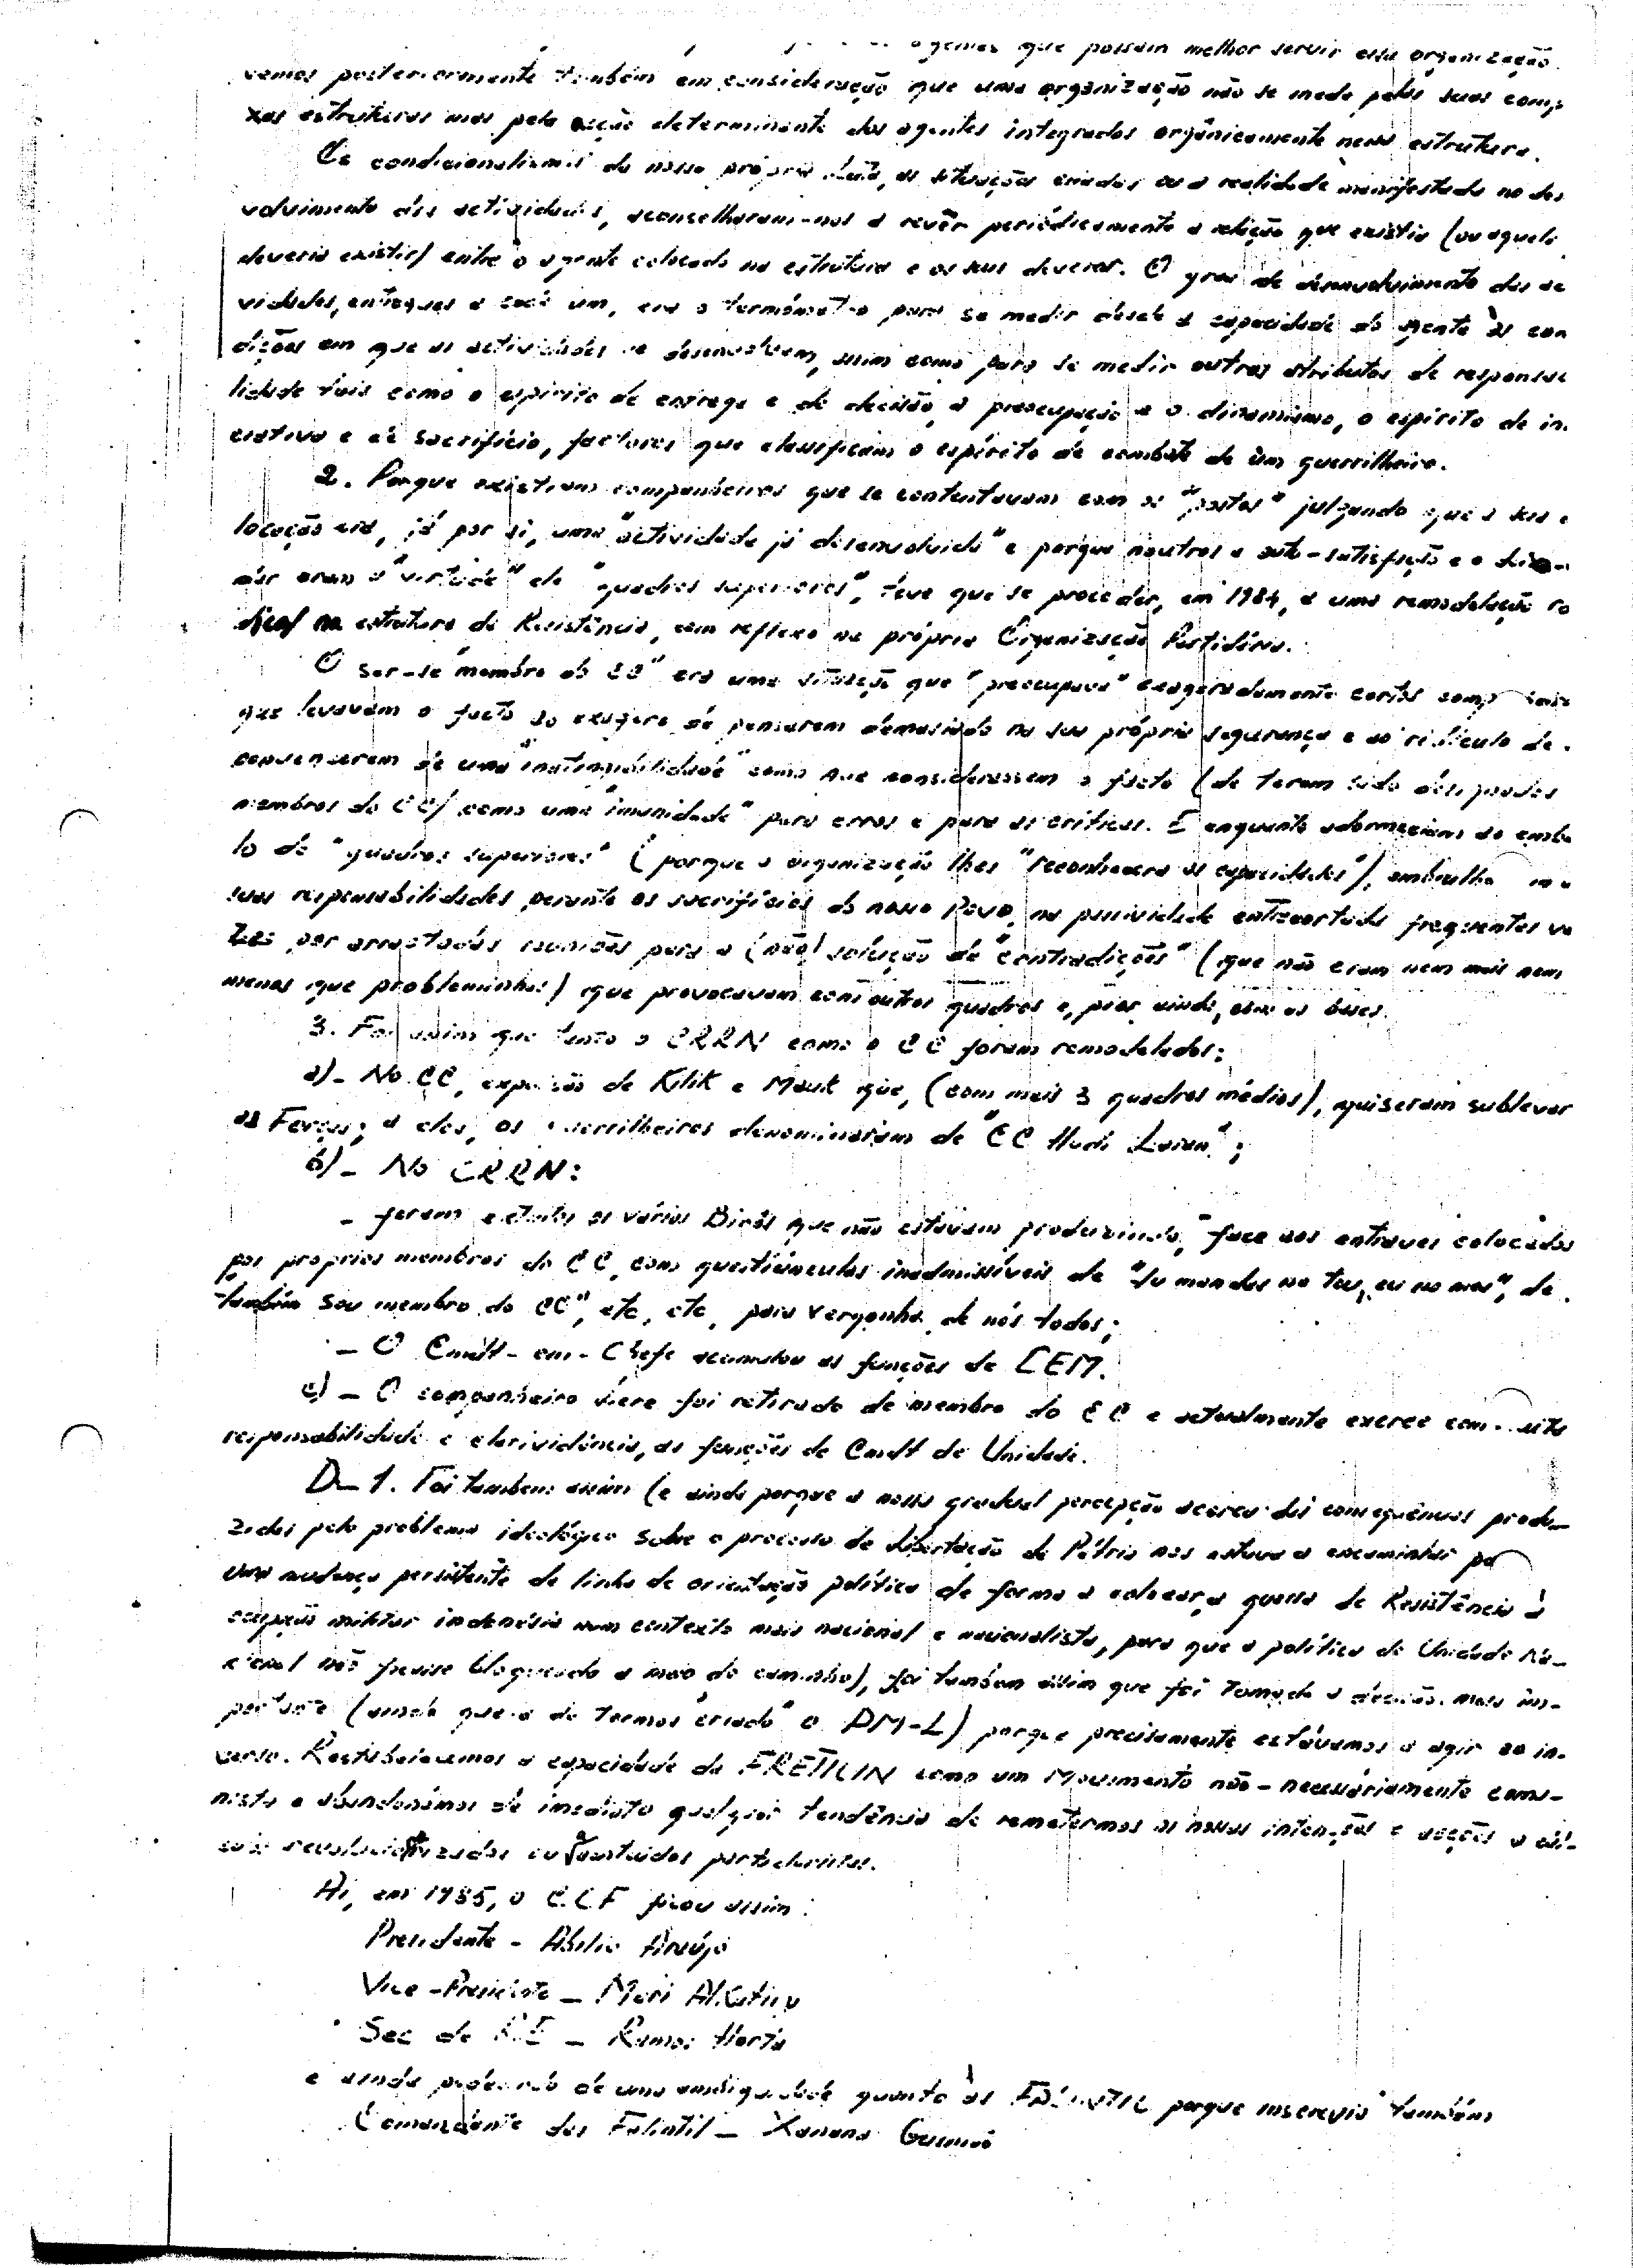 agentes que possam melhor servir essa organização.
vemos posteriormente também em consideração que uma organização não se mede pelas suas comp
xas estruturas mas pela acção determinante dos agentes integrados orgânicamente nessa estrutura.
Os condicionalismos da nossa própria luta, as situações criadas ou a realidade manifestada no des
volvimento das actividades, aconselharam-nos a revêr periòdicamente a relação que existia (ou aquela
deveria existir) entre o agente colocado na estrutura e os seus deveres. O grau de desenvolvimento das ac
vidades, entregues a cada um, era o termómetro para se medir desde a capacidade do agente às con
dições em que as actividades se desenvolvem, assim como para se medir outros atributos de responsa
lidade tais como o espírito de entrega e de decisão, a preocupação e o dinamismo, o espírito de in
ciativa e de sacrifício, factores que classificam o espírito de combate de um guerrilheiro.
2. Porque existiam companheiros que se contentavam com os "postos" julgando que a sua c
locação era, já por si, uma "actividade já desenvolvida" e porque noutros a auto-satisfação e o
eram a "virtude" de "quadros superiores", teve que se proceder, em 1984, a uma remodelação ra
dical na estrutura da Resistência, com reflexo na própria Organização Partidária.
O ser-se "membro do CC" era uma situação que "preocupava" exageradamente certos comp
que levavam o facto ao exagero de pensarem demasiado na sua própria segurança e ao ridículo de
convencerem de uma "inatingibilidade" como que considerassem o facto (de terem sido designados
membros do CC) como uma "imunidade" para erros e para as críticas. E enquanto adormeciam ao emba
lo de "quadros superiores" (porque a organização lhes "reconhecera as capacidades"),
suas responsabilidades perante os sacrifícios do nosso Povo, na passividade entrecortada frequentes ve
zes por arrastadas reuniões para a (não) solução de "contradições" (que não eram nem mais nem
menos que probleminhas) que provocavam com outros quadros e, pior ainda, com as bases.
3. Foi assim que tanto o CRRN como o CC foram remodelados:
a)- No CC, expulsão de Kilik e Mauk que, (com mais 3 quadros médios), quiseram sublevar
as Forças; a eles, os guerrilheiros denominaram de "CC Hudi Laran";
b)- No CRRN:
- foram extintos os vários Birôs que não estavam produzindo, face aos entraves colocados
por próprios membros do CC, com questiúnculas inadmissíveis de "tu mandas no teu, eu no meu", de
também sou membro do CC", etc, etc, para vergonha de nós todos;
- O Cmdt-em-Chefe acumulou as funções de CEM.
c)- O companheiro Sere foi retirado de membro do CC e actualmente exerce com muita
responsabilidade e clarividência, as funções de Cmdt de Unidade.
D- 1. Foi também assim (e ainda porque a nossa gradual percepção acerca das consequências produ-
zidas pelo problema ideológico sobre o processo de Libertação da Pátria nos estava a encaminhar pa
uma mudança persistente de linha de orientação política de forma a colocar a guerra de Resistência à
ocupação militar indonésia num contexto mais nacional e nacionalista, para que a política de Unidade Na-
cional não ficasse bloqueada a meio do caminho), foi também assim que foi tomada a decisão mais im-
portante (ainda que a de termos "criado" o PM-L) porque precisamente estávamos a agir ao in-
verso. Restabelecemos a capacidade da FRETILIN como um Movimento não-necessàriamente comu-
nista e abandonámos de imediato qualquer tendência de remetermos as nossas intenções e acções a
revolucionarizadas ou partidaristas.
Aí, em 1985, o C.C.F ficou assim:
Presidente - Abílio Araújo
Vice-Presidente - Mari Alkatiri
Sec de R.E - Ramos Horta
e ainda de uma ambiguidade quanto às FALINTIL porque inscrevia também
Comandante das Falintil - Xanana Gusmão